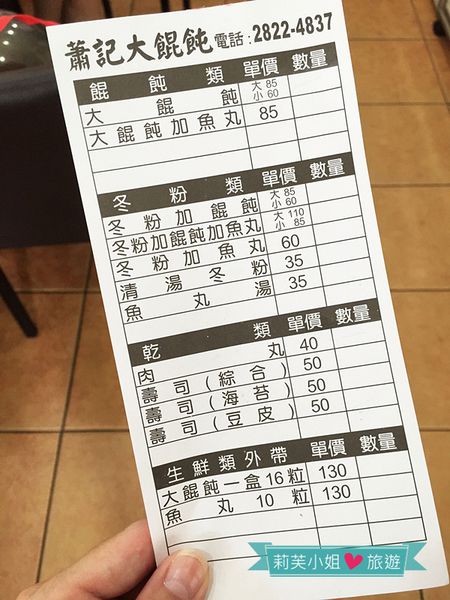 蕭記大餛飩 電話:2822-4837
餛飩類 單價 數量
大餛飩 大85 小60
大餛飩加魚丸 85
冬粉類 單價 數量
冬粉加餛飩 大85 小60
冬粉加餛飩加魚丸 大110 小85
冬粉加魚丸 60
清湯冬粉 35
魚丸湯 35
乾類 單價 數量
肉丸 40
壽司(綜合) 50
壽司(海苔) 50
壽司(豆皮) 50
生鮮類外帶 單價 數量
大餛飩一盒16粒 130
魚丸10粒 130
莉芙小姐❤旅遊